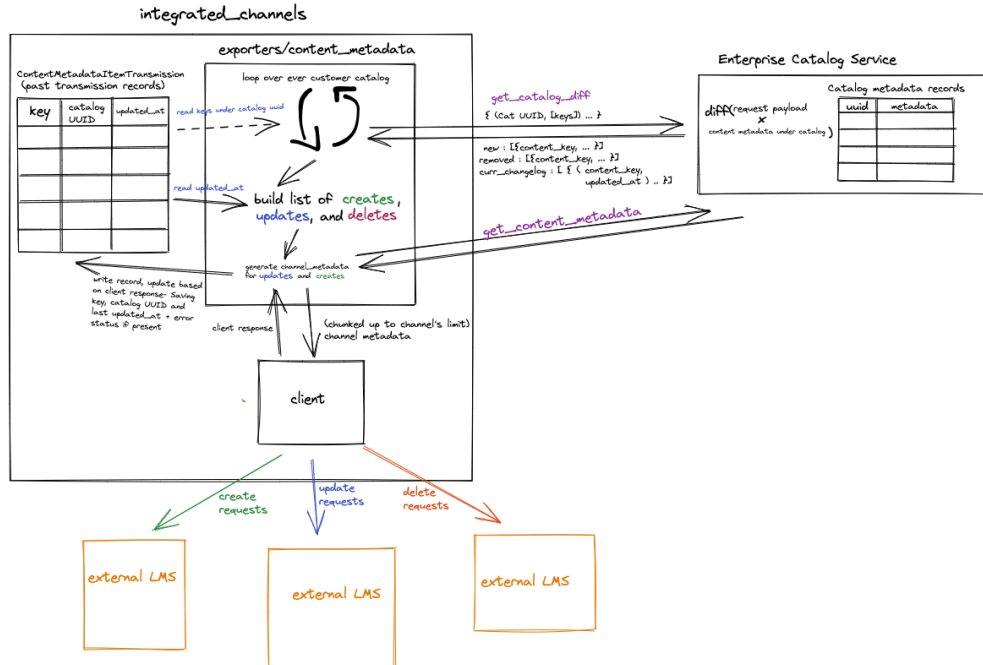 integrated_channels
exporters/content_metadata
loop over ever customer catalog
ContentMetadataItemTransmission
(past transmission records)
key
catalog
UUID
updated_at
read keys under catalog uuid
read updated_at
build list of creates,
updates, and deletes
generate channel_metadata
for updates and creates
write record, update based
on client response- Saving
key, catalog UUID and
last updated_at + error
status if present
client response
(chunked up to channel's limit)
channel metadata
client
get_catalog_diff
{ (Cat UUID, [keys]) ... }
new : [{content_key, ... }]
removed : [{content_key, ... }]
curr_changelog : [ { ( content_key,
updated_at ) .. }]
get_content_metadata
Enterprise Catalog Service
Catalog metadata records
uuid
metadata
diff(request payload
x
content metadata under catalog)
create
requests
update
requests
delete
requests
external LMS
external LMS
external LMS